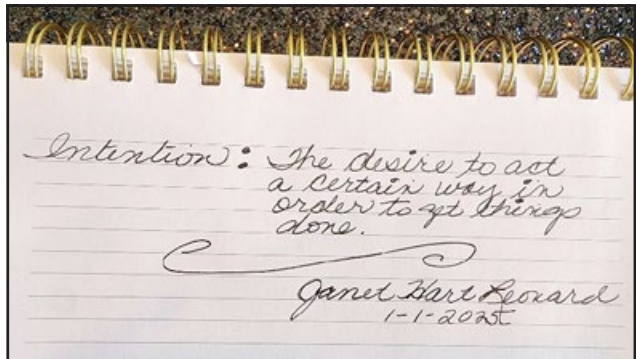 Intention: The desire to act
a certain way in
order to get things
done.
Janet Hart Leonard
1-1-2025